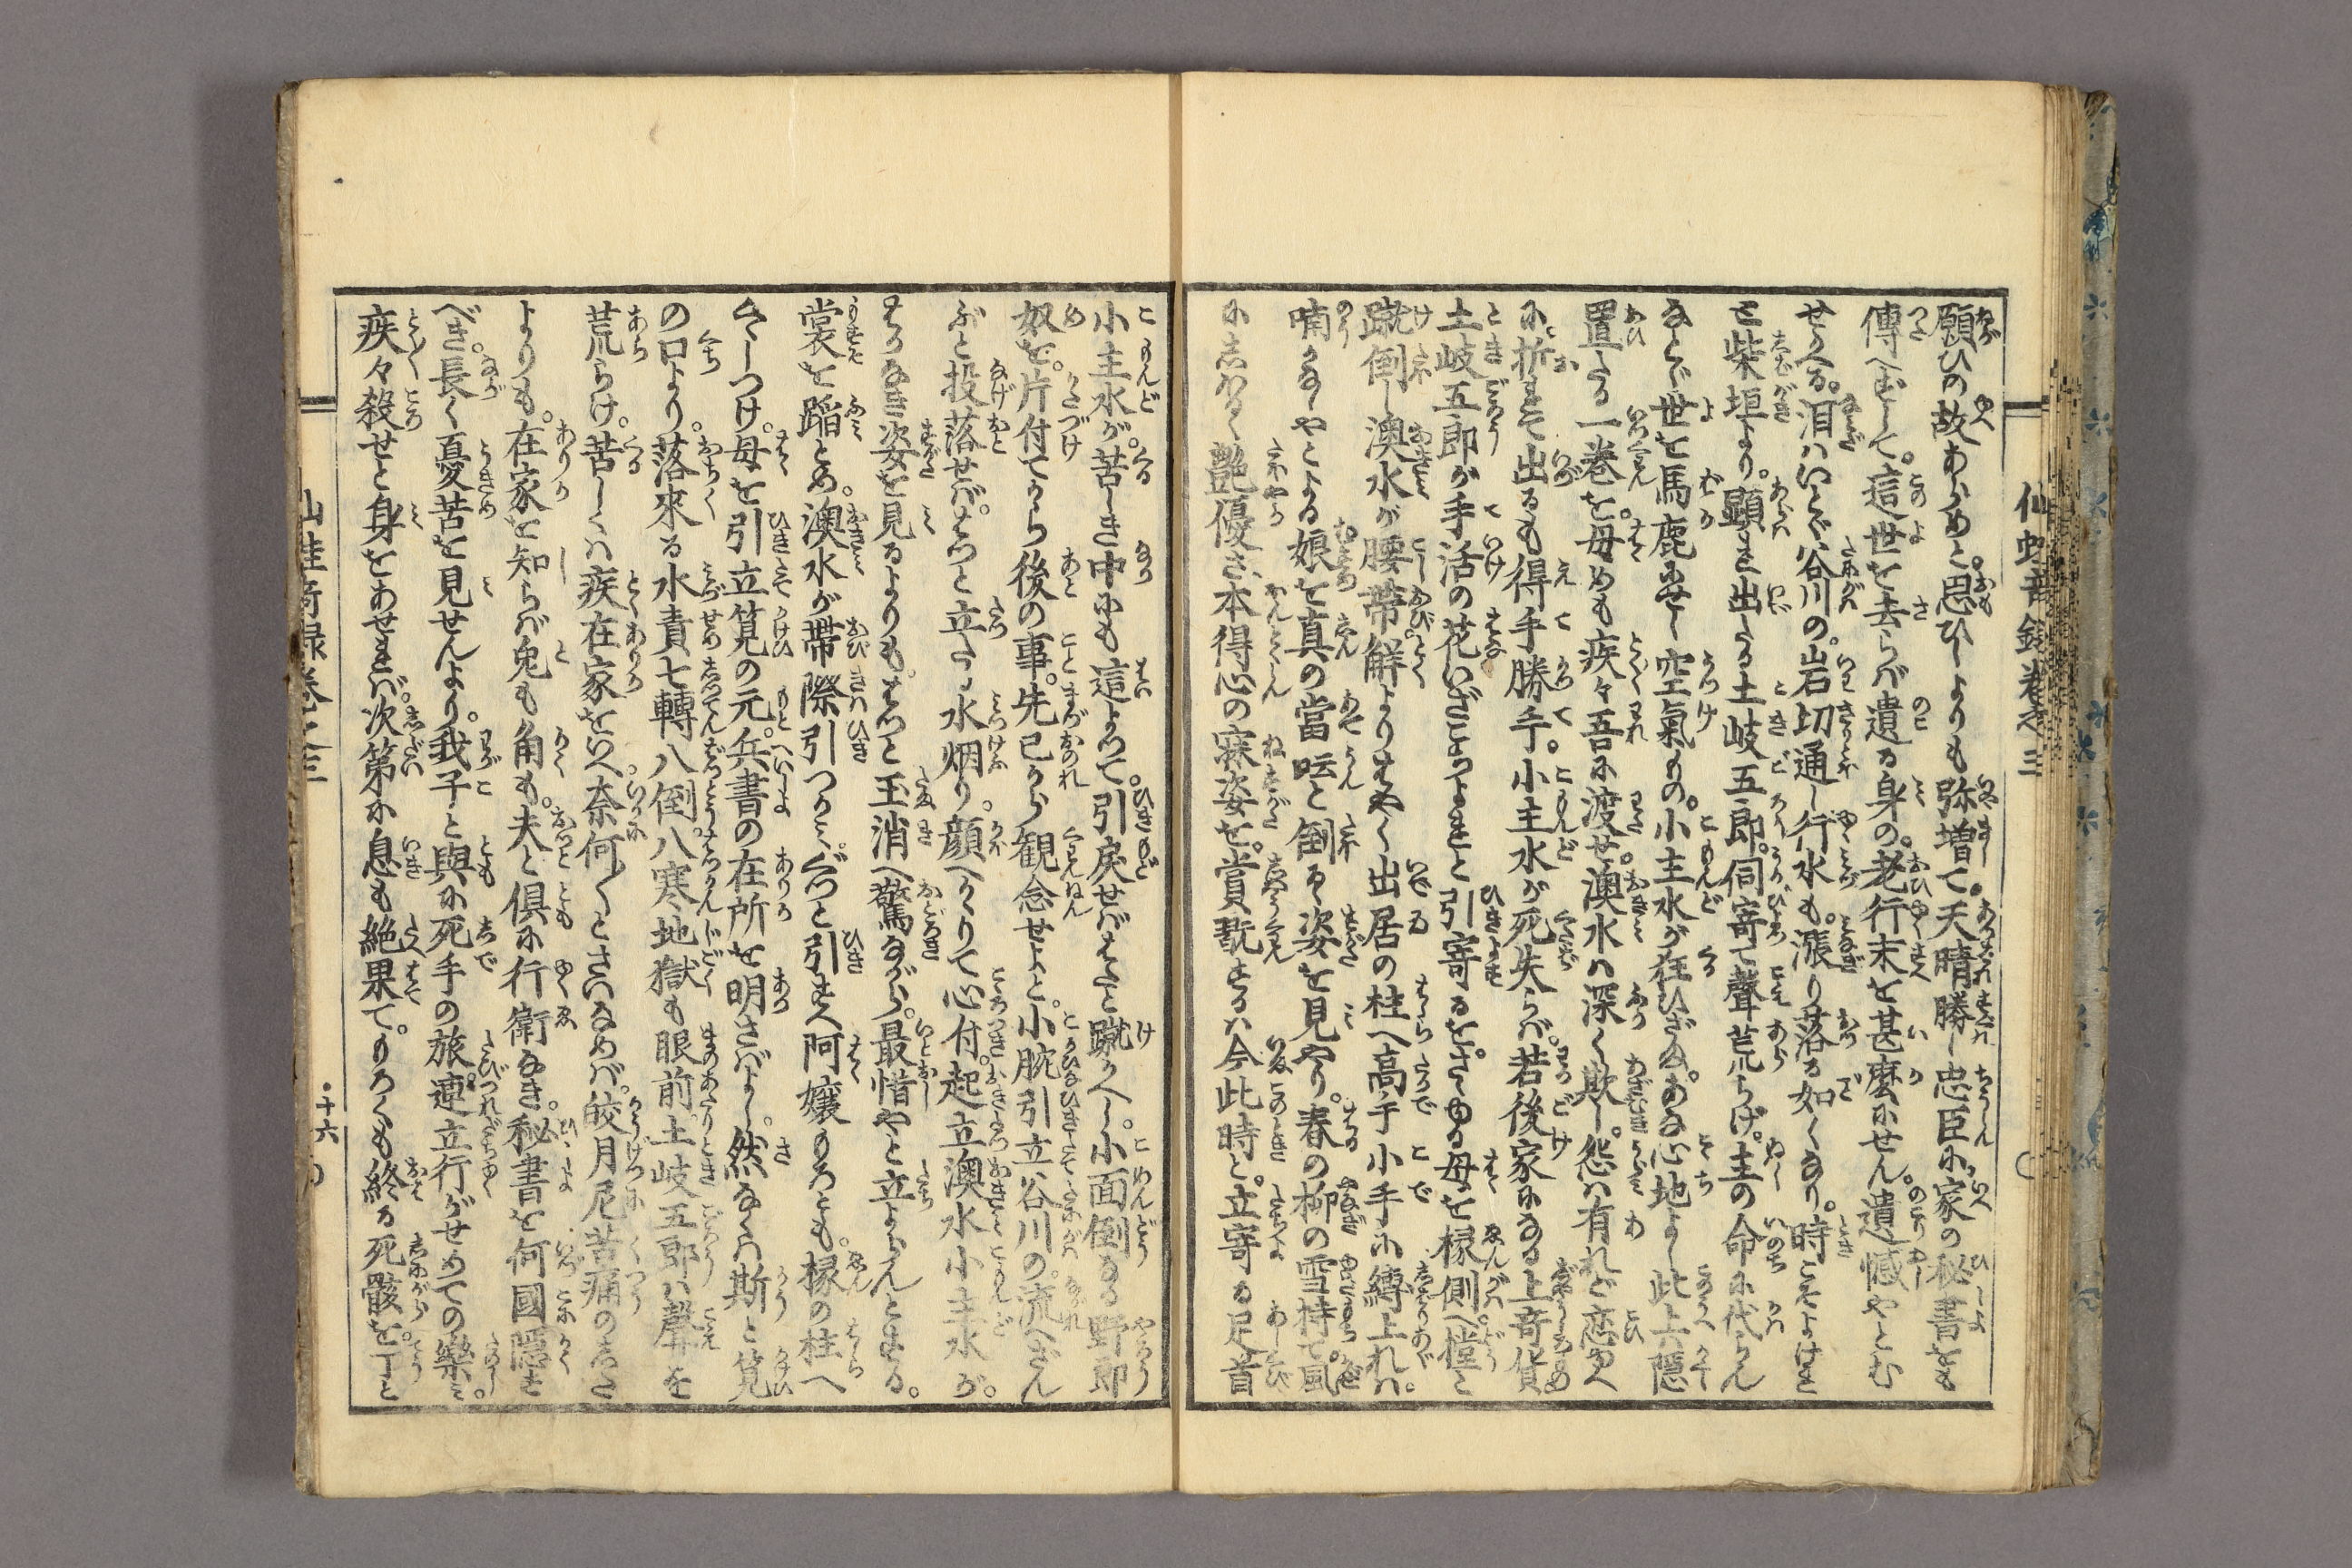 願ひの故あらめと。思ひしよりも弥増て。天晴勝し忠臣に家の秘書をも
傳へずして。這世を去らば遺る身の。老行末を甚麼にせん。遺憾やとむ
せかへる。泪はいとゞ谷川の。岩切通し行水も。漲り落る如くなり。時こそよけれ
と柴垣より。顕れ出たる土岐五郎。伺寄て聲荒らげ。主の命に代らん
などゝ世を馬鹿にせし空氣もの。小主水が狂ひざま。あな心地よし此上は隠
置たる一巻を。母めも疾々吾に渡せ。澳水は深く欺し。怨は有れど恋ゆへ
に折れて出るも得手勝手。小主水が死失らば。若後家になる上竒貨
土岐五郎が手活の花いざこなたよれと引寄るを。さゝゆる母を縁側へ撞と
蹴倒し澳水が腰帯解よりはやく出居の柱へ高手小手に縛上れば。
喃かなしやとよる娘を真の當呍と倒るゝ姿を見やり。春の柳の雪持て風
にしわるゝ艶優さ。本得心の寐姿を。賞翫せるは今此時と。立寄る足首
小主水が。苦しき中にも這よつて。引戻せばはたと蹴かへし。小面倒なる野郎
奴を。片付てから後の事。先己から観念せよと。小腕引立谷川の。流へざん
ぶと投落せば。はつと立たる水烟り。顔へかゝりて心付。起立澳水小主水が。
はかなき姿を見るよりも。はつと玉消へ驚ながら。最惜やと立よらんとする。
裳を蹈とめ。澳水が帯際引つかみ。ぐつと引すへ阿嬢もろとも。縁の柱へ
くゝしつけ。母を引立筧の元。兵書の在所を明さばよし。然なくは斯と筧
の口より。落來る水責七轉八倒。八寒地獄も眼前土岐五郎は聲を
荒らげ。苦しくは疾在家をいへ奈何〱とさいなめば。皎月尼苦痛の下
よりも。在家を知らば兎も角も。夫と倶に行衛なき。秘書を何國に隠す
べき。長く憂苦を見せんより。我子と與に死手の旅。連立行がせめての樂み。
疾々殺せと身をあせれば。次第に息も絶果て。もろくも終る死骸を。丁と